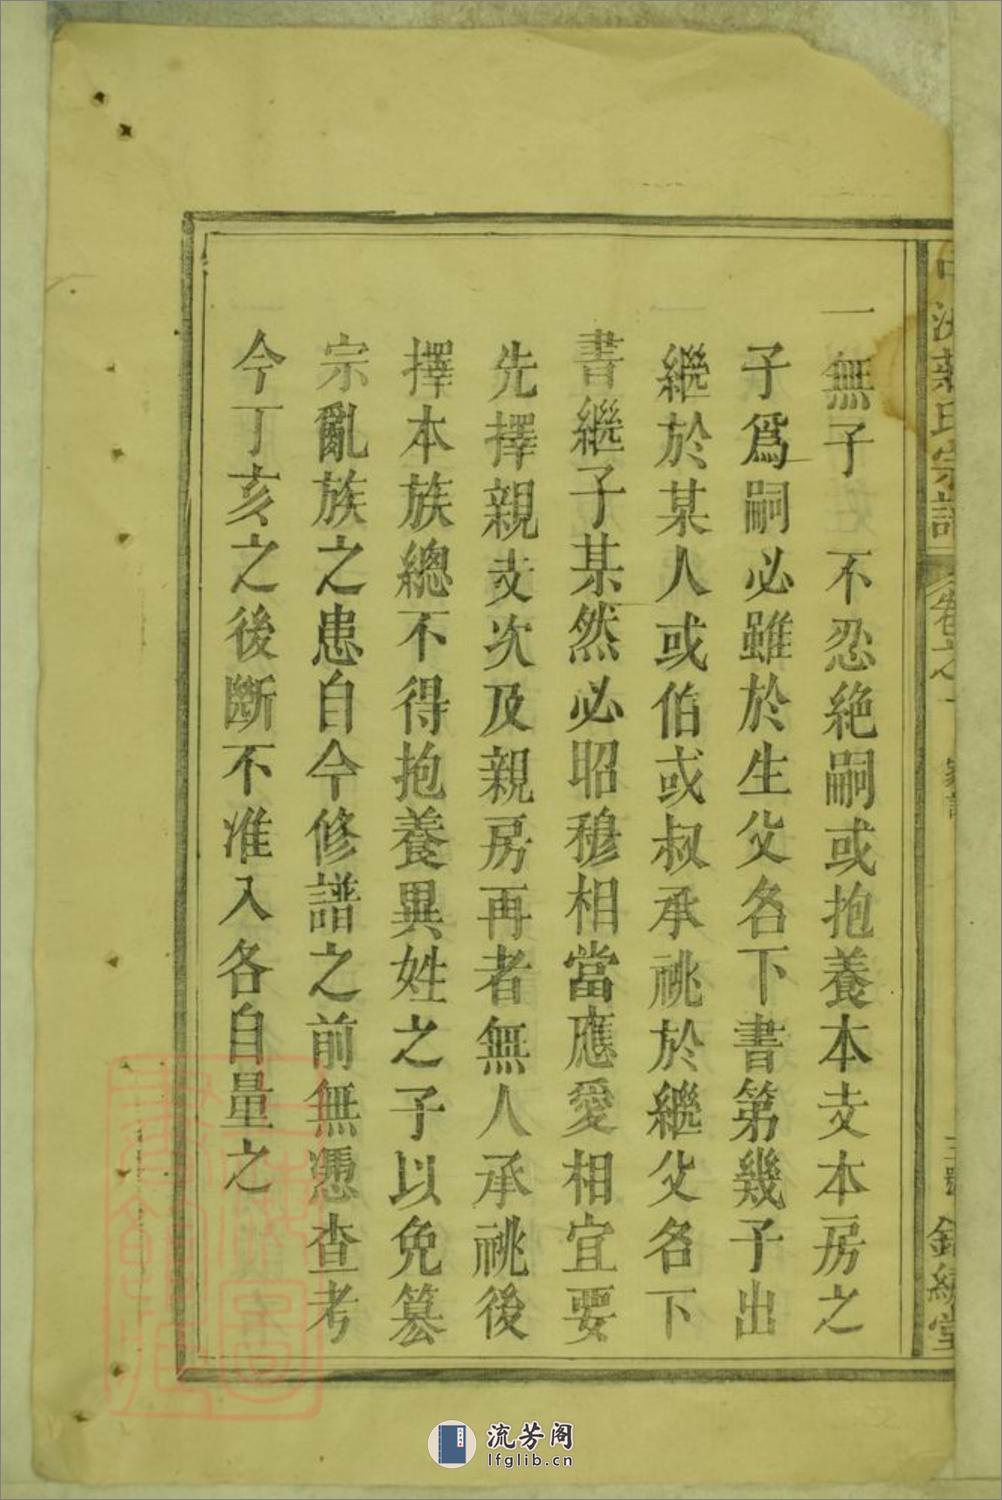 一無子不忍絶嗣或抱養本支本房之
子爲嗣必雖於生父名下書第幾子出
繼於某人或伯或叔承祧於繼父名下
書繼子某然必昭穆相當應愛相宜要
先擇親支次及親房再者無人承祧後
擇本族總不得抱養異姓之子以免篡
宗亂族之患自今修譜之前無憑查考
今丁亥之後斷不准入各自量之
氏宗譜
卷之一
堂
流芳阁
lfglib.cn